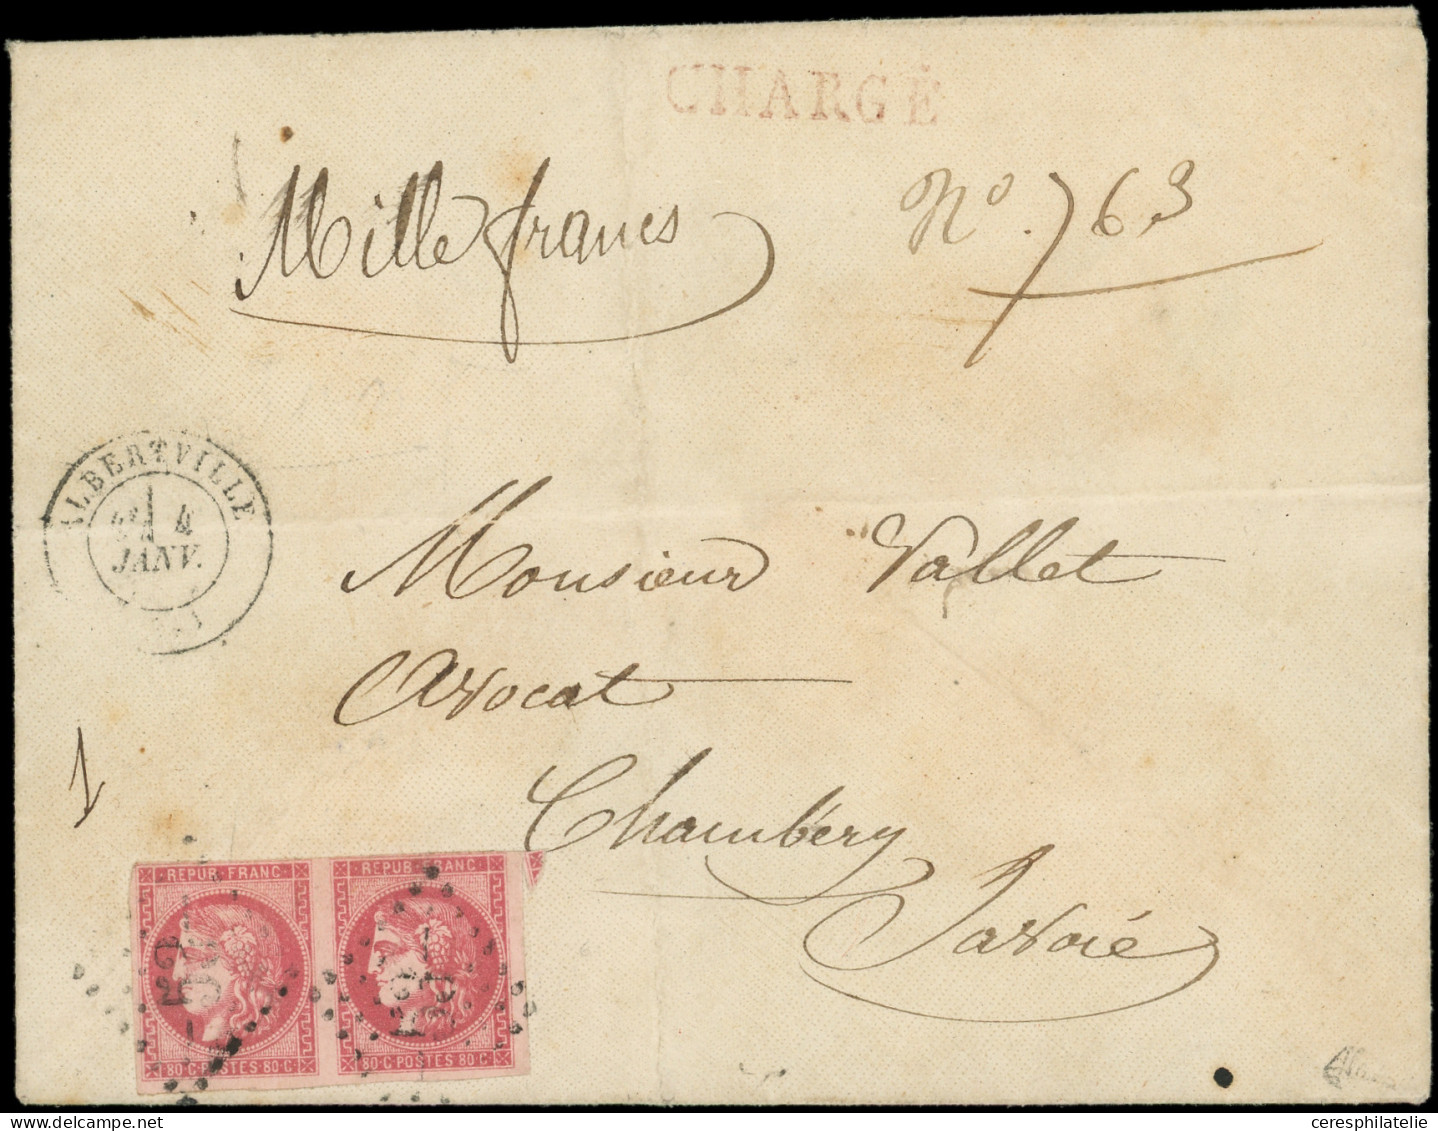 CHARGÉ
Mille francs
No. 763
ALBERTVILLE
4
JANV.
Monsieur Vallet
Avocat
Chambéry
Savoie
1
REPUB. FRANC.
80·C POSTES 80·C
REPUB. FRANC.
80·C POSTES 80·C
ceresphilatelie